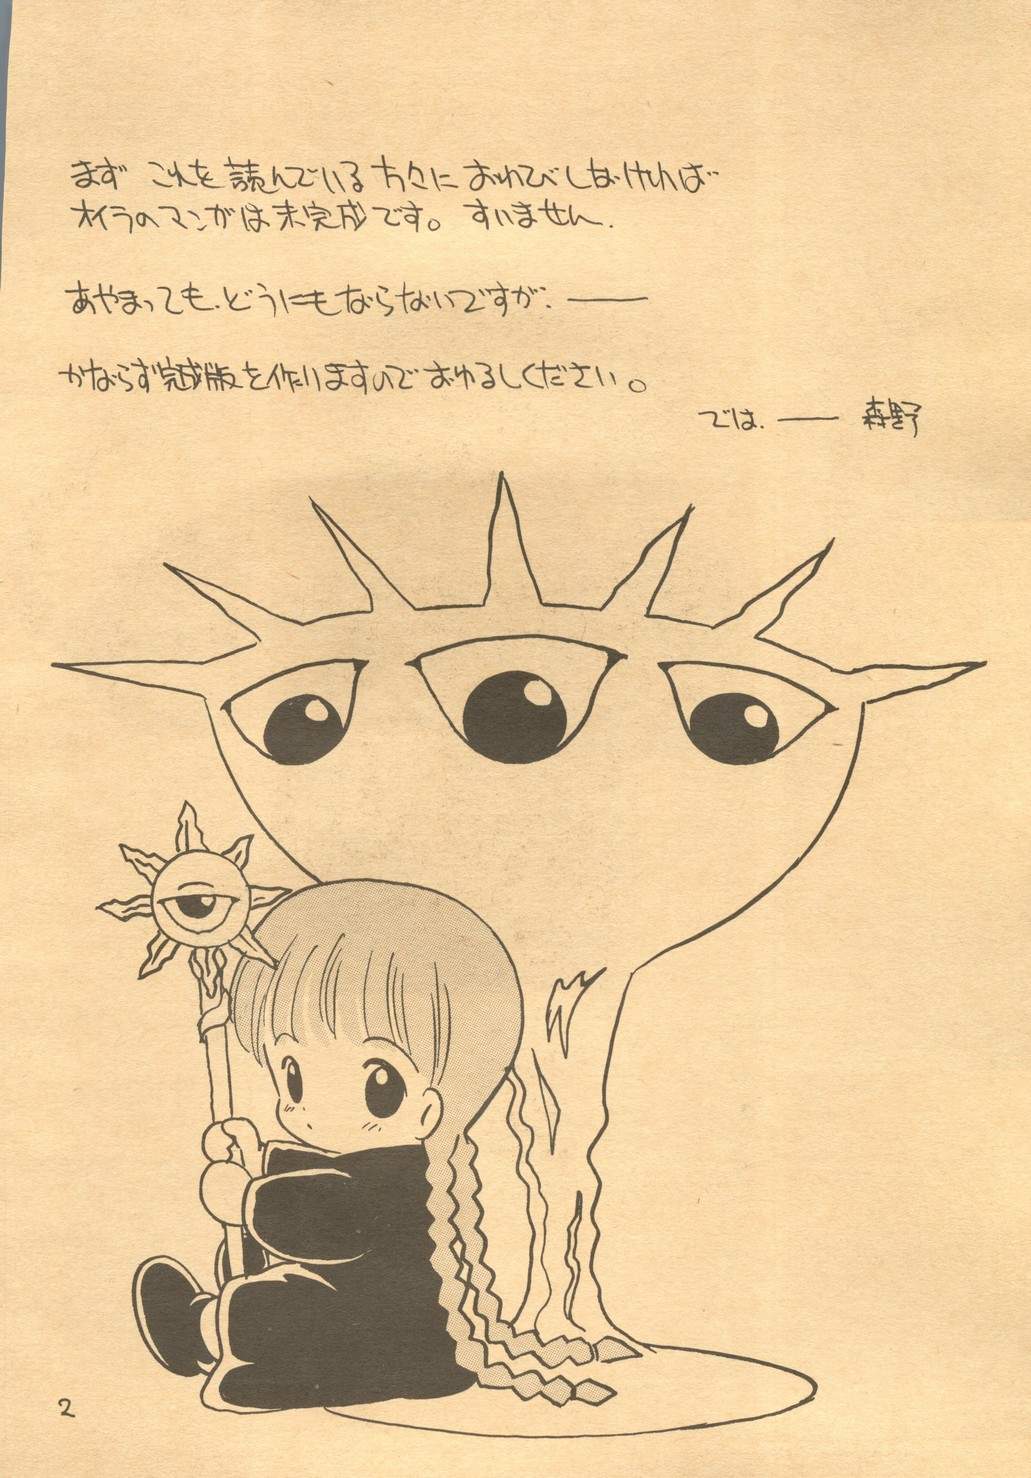 まず これを読んでいる方々におわびしなければ
オイラのマンガは未完成です。 すいません.
あやまっても、どうにもならないですが、――
かならず完成版を作りますのでおゆるしください。
では、―― 森野
2